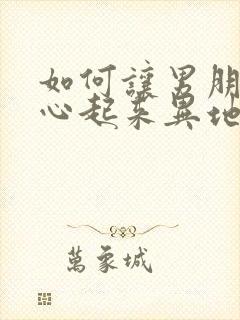 如何讓男朋
心起来異地
萬象城